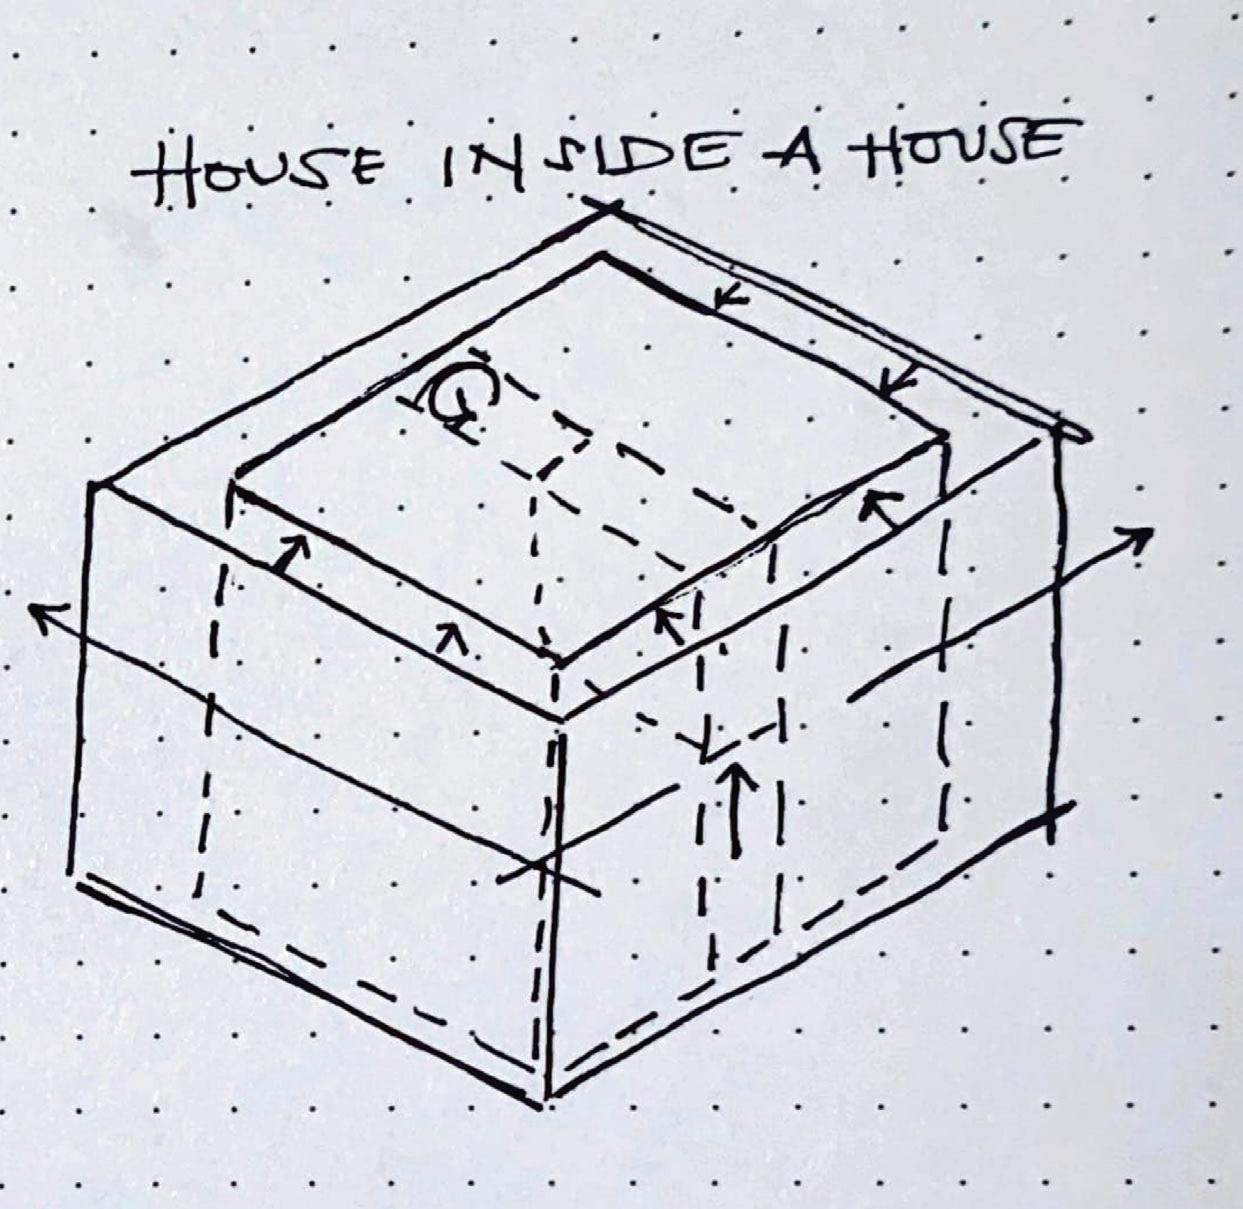 HOUSE INSIDE A HOUSE